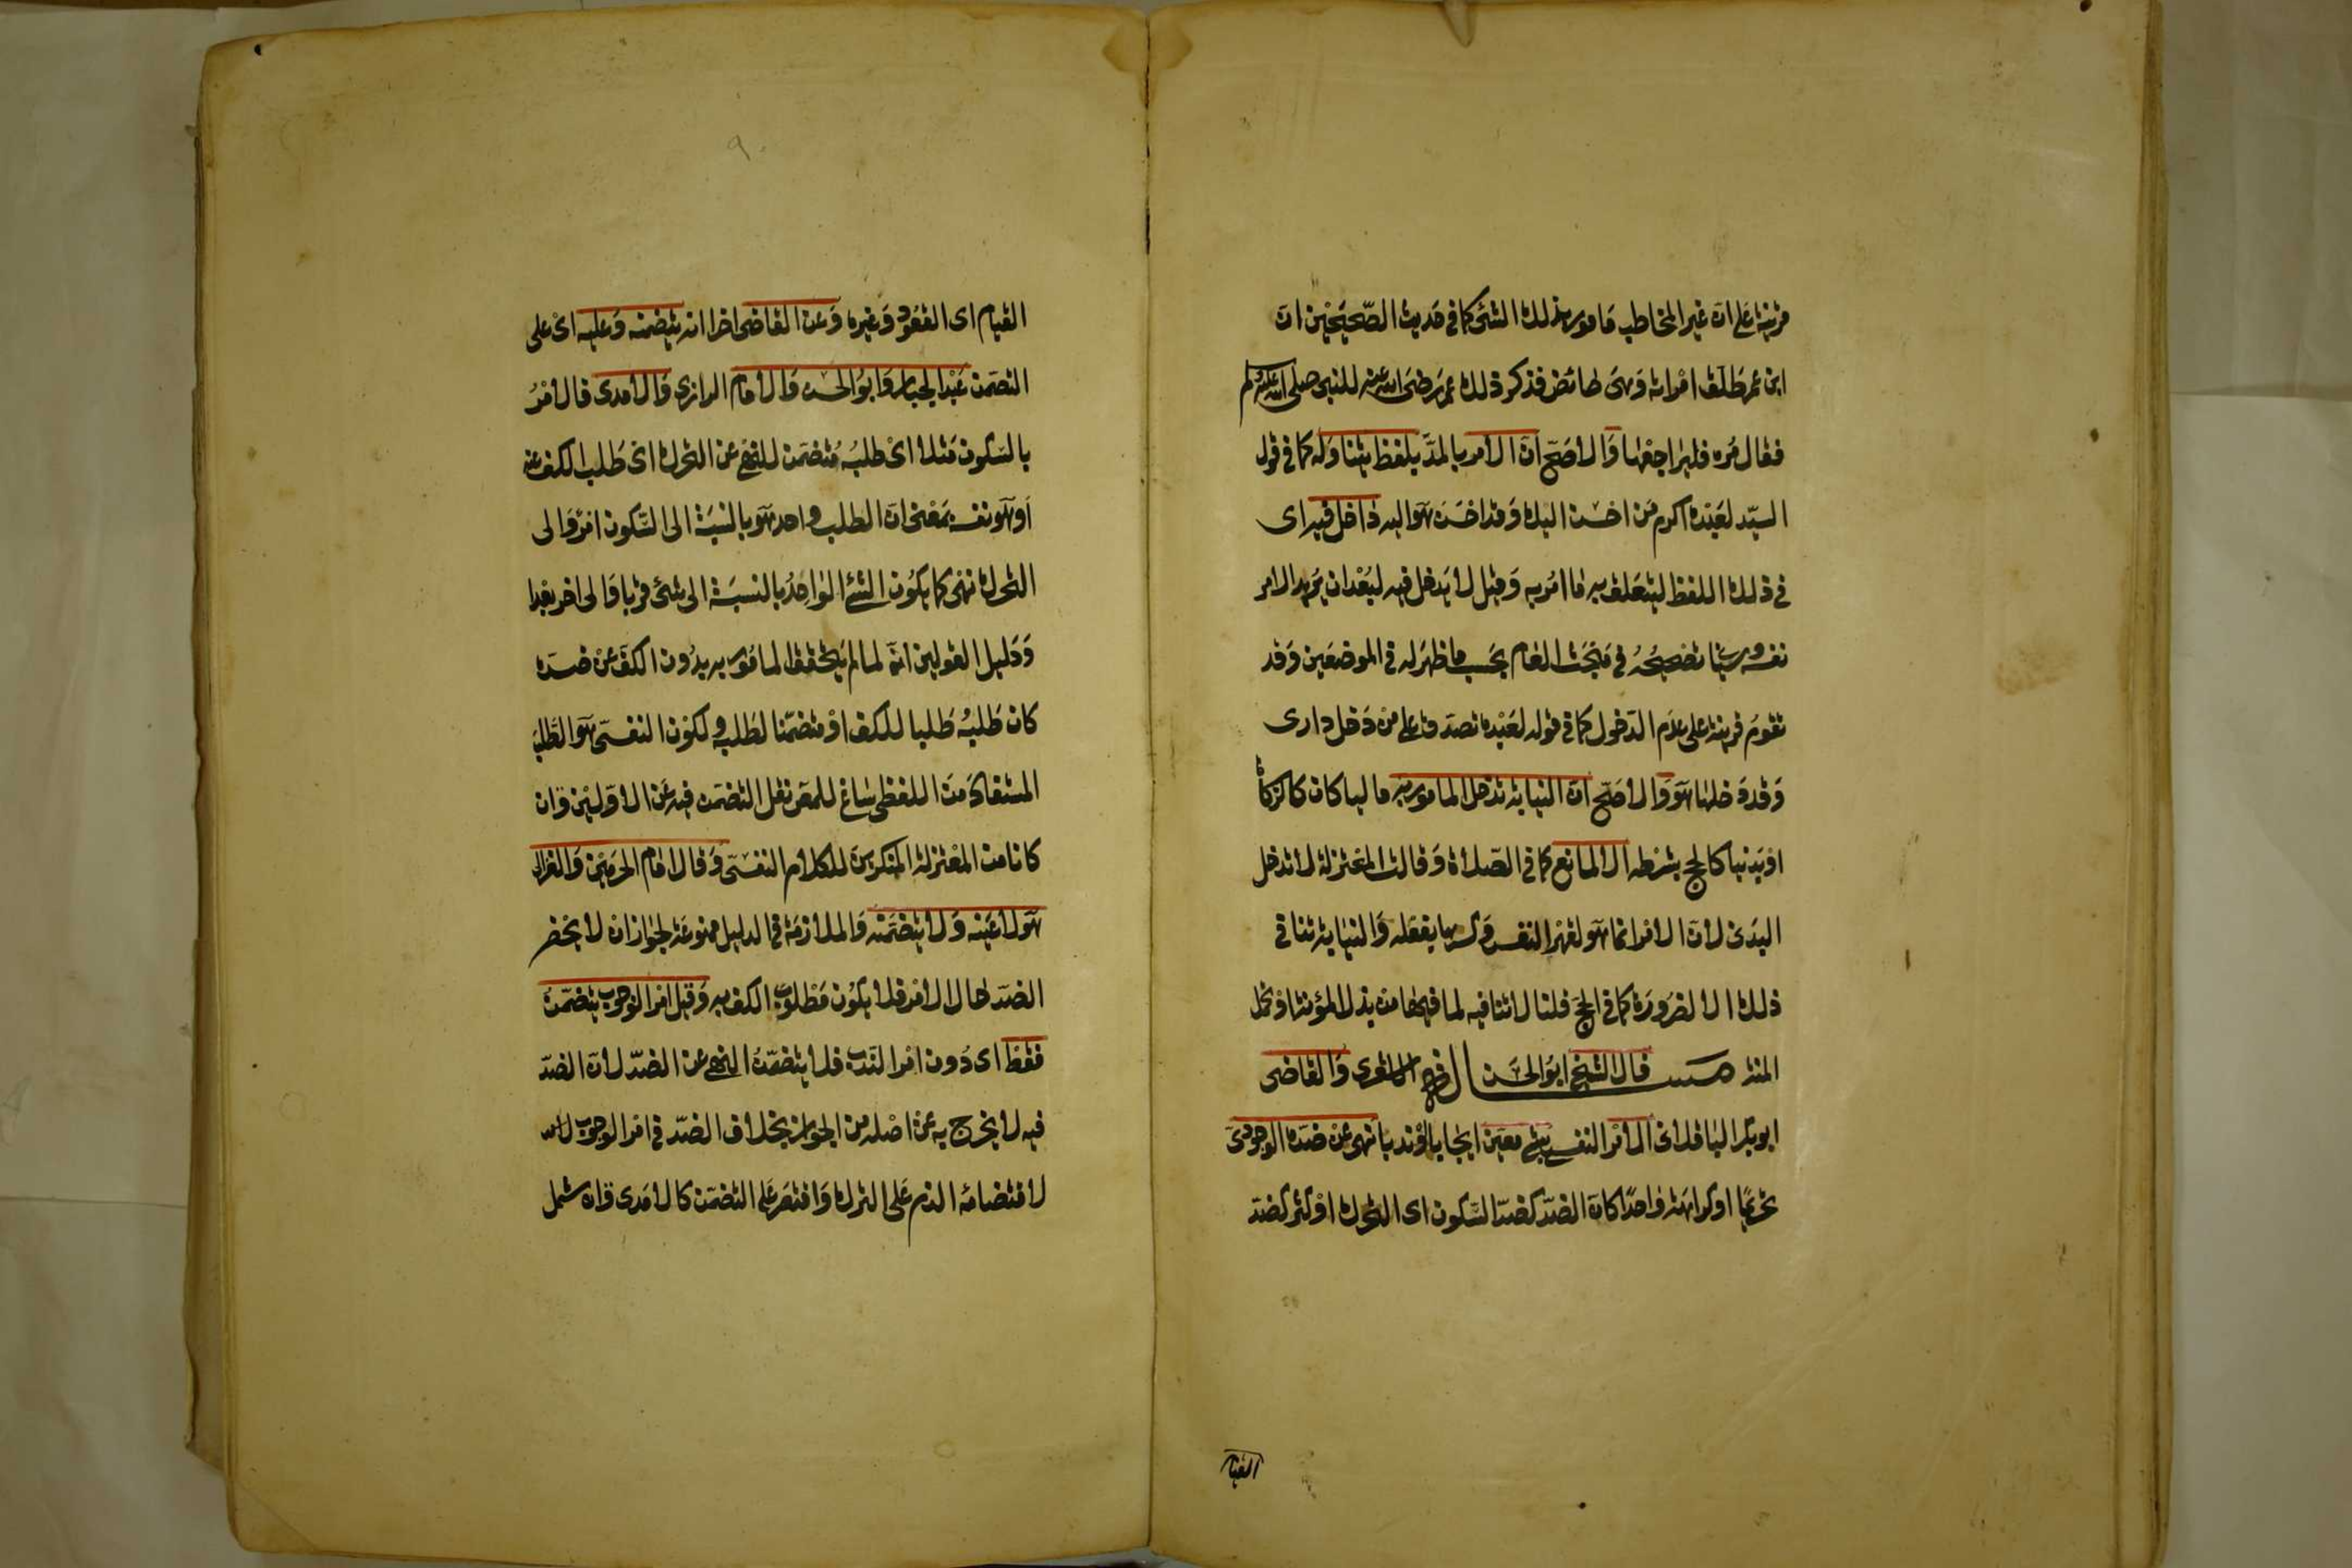 قرينة على ان غير المخاطب مامور بذلك الشئ كما في حديث الصّحيحين ان
ابن عمر طلّق امراته وهى حائض فذكر ذلك عمر رضى الله عنه للنبى صلى الله عليه وسلم
فقال مره فليراجعها والاصحّ انّ الامر بالمدّ بلفظ يتناوله كما في قول
السيّد لعبده اكرم من احسن اليك وقد احسن هو اليه داخل فيه اى
في ذلك اللفظ ليتعلق به ما امر به وقيل لا يدخل فيه لبعد ان يريد الامر
نفسه وسيأتى تصحيحه في مبحث العام بحسب ما ظهر له في الموضعين وقد
تقوم قرينة على عدم الدّخول كما في قوله لعبده تصدق على من دخل دارى
وقد دخلها هو والاصحّ انّ النيابة تدخل المامور به ماليا كان كالزكاة
او بدنيا كالحج بشرطه الا لمانع كما في الصّلاة وقالت المعتزلة لا تدخل
البدنى لانّ الامر انما هو لقهر النفس وكسرها بفعله والنيابة تنافى
ذلك الا لضرورة كما في الحجّ قلنا لا تنافيه لما فيها من بذل المؤنة او تحمل
المنة مسئلة قال الشيخ ابو الحسن الاشعرى والقاضى
ابو بكر الباقلانى الامر النفسى بشئ معيّن ايجابا او ندبا نهى عن ضدّه الوجودىّ
تحريما او كراهة واحدا كان الضدّ كضدّ السّكون اى التحرك او اكثر كضدّ
القيام
القيام اى القعود وغيره وعن القاضى اخرا انه يتضمنه وعليه اى على
التضمن عبد الجبار وابو الحسين والامام الرازى والآمدى فالامر
بالسّكون مثلا اى طلبه متضمن للنهى عن التحرك اى طلب الكف عنه
او هو نفسه بمعنى انّ الطلب واحد هو بالنسبة الى السّكون امر والى
التحرك نهى كما يكون الشئ الواحد بالنسبة الى شئ قربا والى اخر بعدا
ودليل القولين انّه لما لم يتحقق المامور به بدون الكفّ عن ضدّه
كان طلبه طلبا للكف او متضمّنا لطلبه ولكون النفسى هو الطلب
المستفاد من اللفظى ساغ للمصنف نقل التضمن فيه عن الاوّلين وان
كانا من المعتزلة المنكرين للكلام النفسىّ وقال امام الحرمين والغزالى
هو لا عينه ولا يتضمنه والملازمة في الدليل ممنوعة لجواز ان لا يحضر
الضدّ حال الامر فلا يكون مطلوب الكف به وقيل امر الوجوب يتضمّن
فقط اى دون امر الندب فلا يتضمّن النهى عن الضدّ لانّ الضدّ
فيه لا يخرج به عن اصله من الجواز بخلاف الضدّ في امر الوجوب
لاقتضائه الذم على الترك واقتصر على التضمّن كالامدى وان شمل